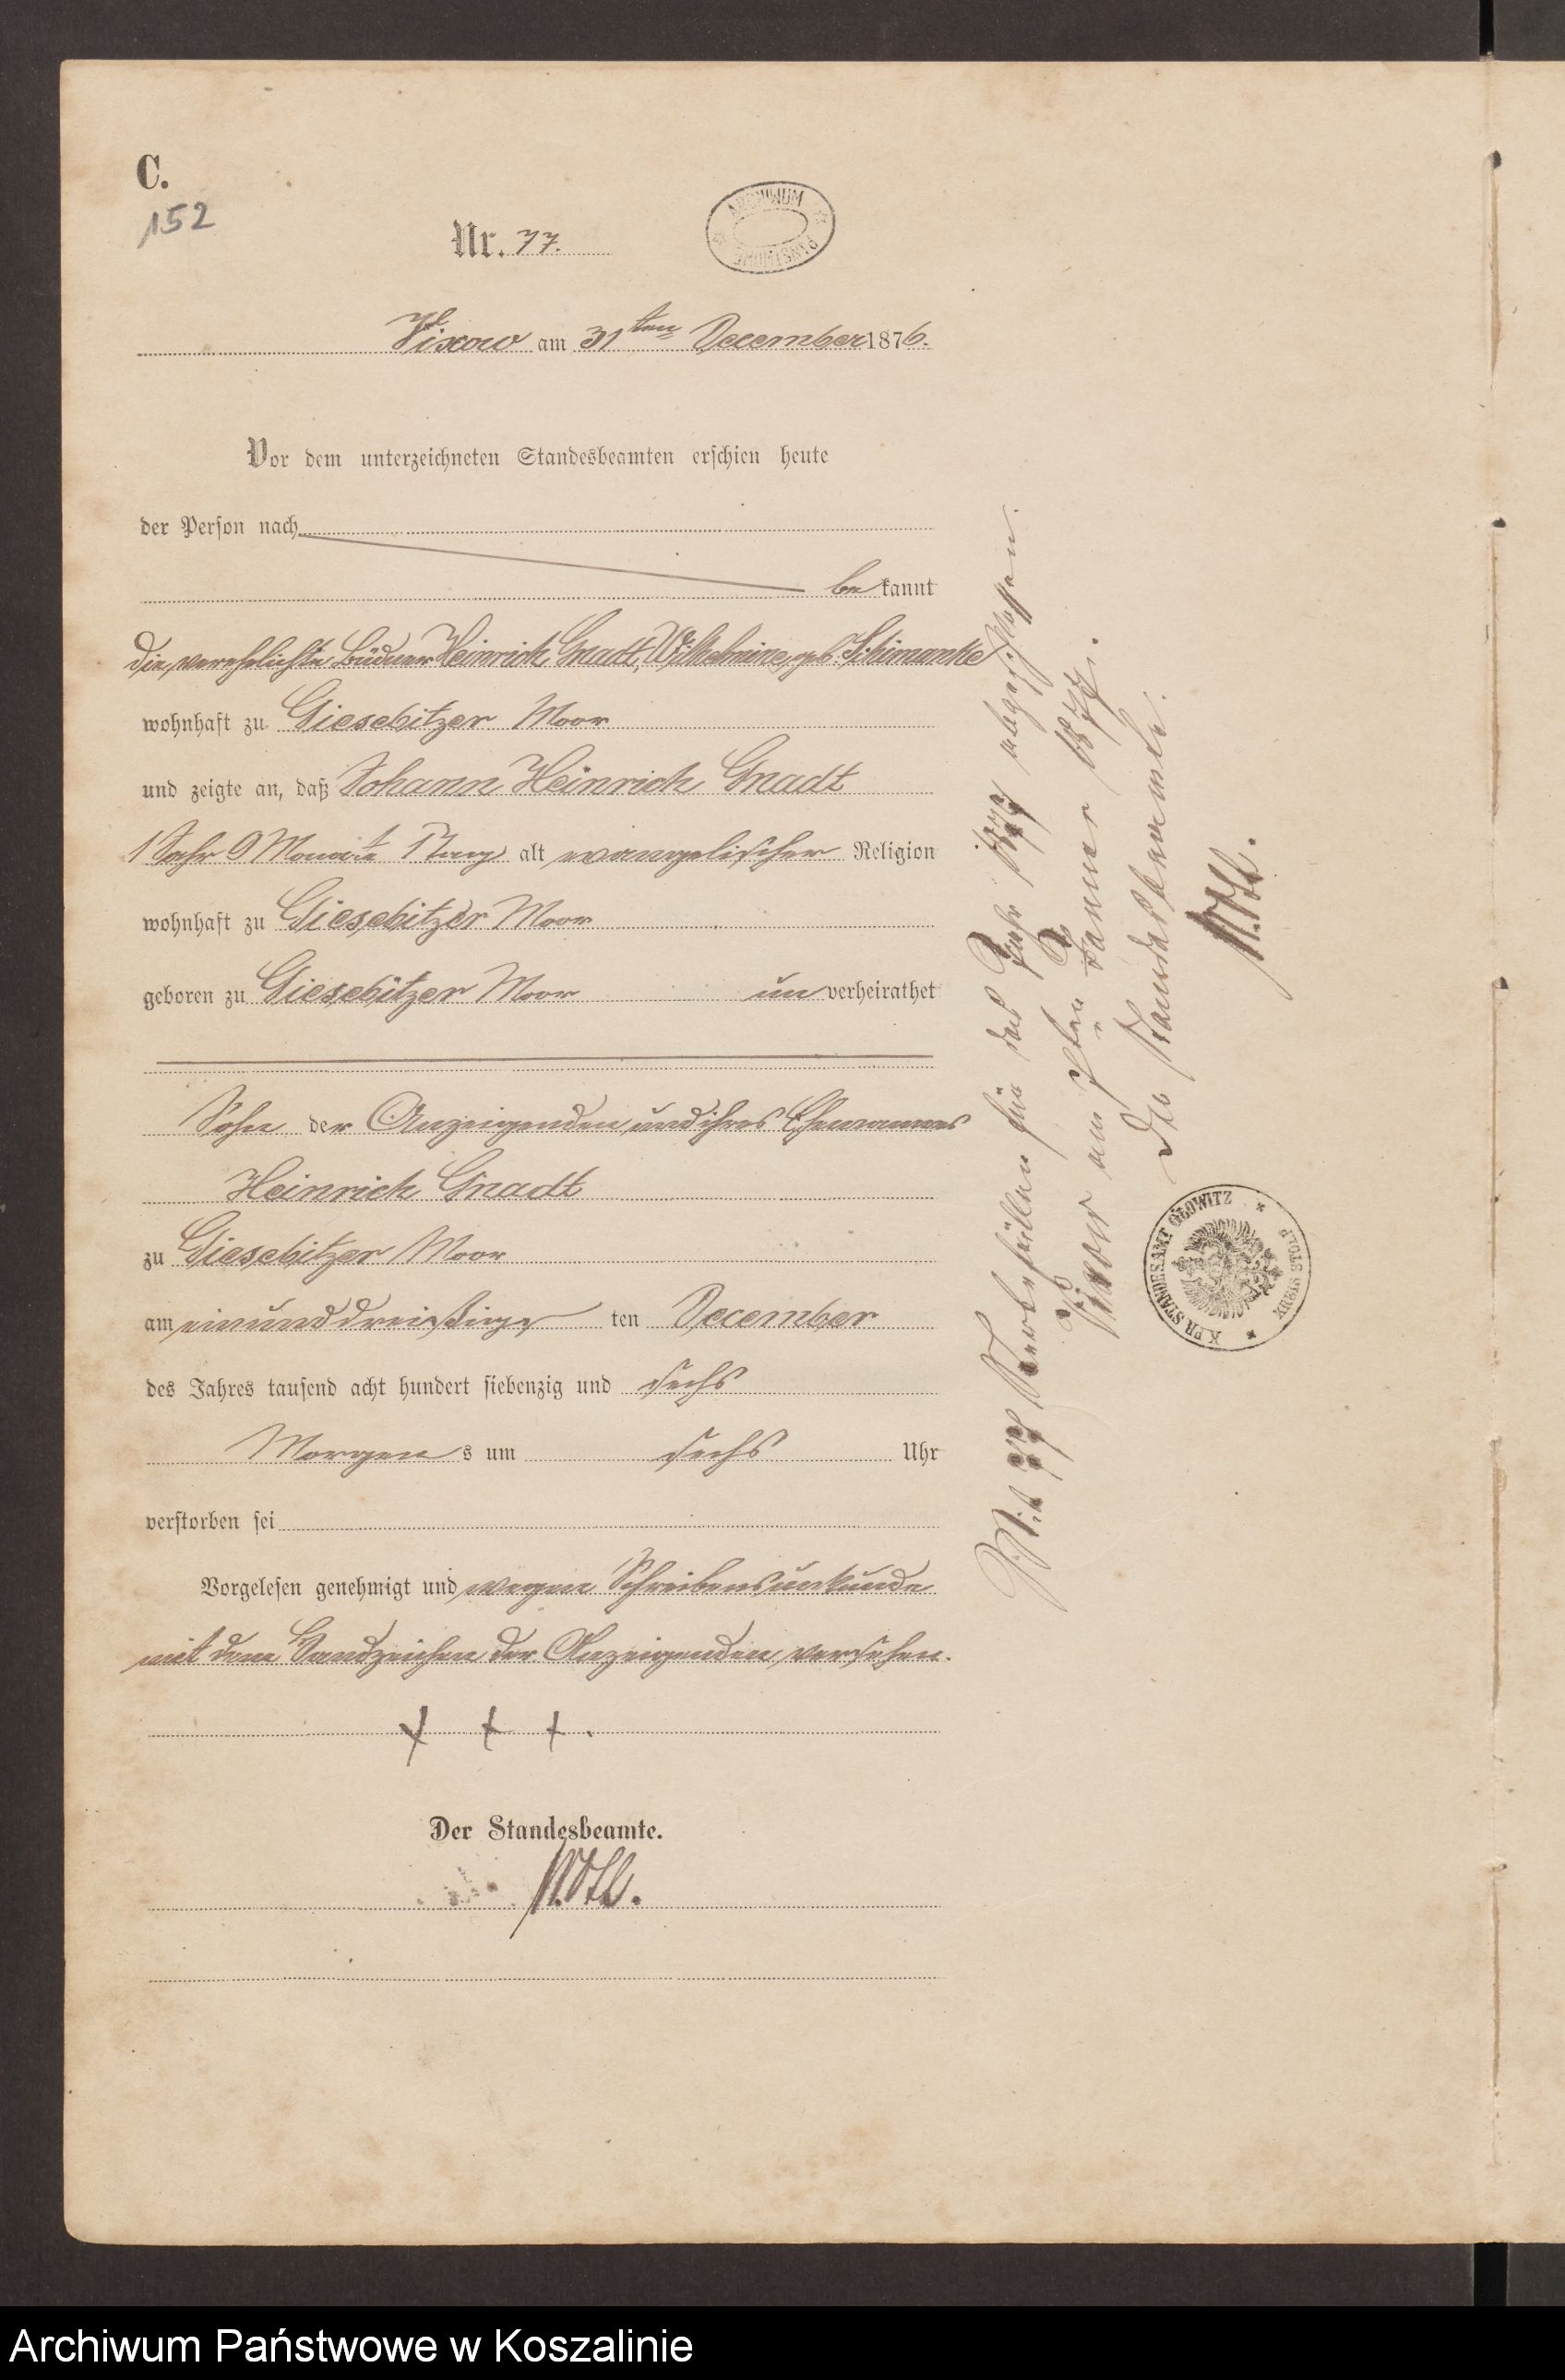 C.
152
Nr. 77.
ARCHIWUM PAŃSTWOWE
Vixow am 31ten December 1876.
Vor dem unterzeichneten Standesbeamten erschien heute
der Person nach
bekannt
die verehelichte Büdner Heinrich Gnadt, Wilhelmine, geb. Schimanke
wohnhaft zu Giesebitzer Moor
und zeigte an, daß Johann Heinrich Gnadt
1 Jahr 9 Monate 1 Tag alt evangelischer Religion
wohnhaft zu Giesebitzer Moor
geboren zu Giesebitzer Moor unverheirathet
Sohn der Anzeigenden und ihres Ehemannes
Heinrich Gnadt
zu Giesebitzer Moor
am einunddreißigsten December
des Jahres tausend acht hundert siebenzig und sechs
Morgens um sechs Uhr
verstorben sei
Vorgelesen genehmigt und wegen Schreibensunkunde
mit dem Handzeichen der Anzeigenden versehen.
+ + +.
Der Standesbeamte.
Mit 77 Sterbefällen für das Jahr abgeschlossen.
Vixow am ten Januar 1877.
Der Standesbeamte.
K. PR. STANDESAMT GLOWITZ * KREIS STOLP *
Archiwum Państwowe w Koszalinie